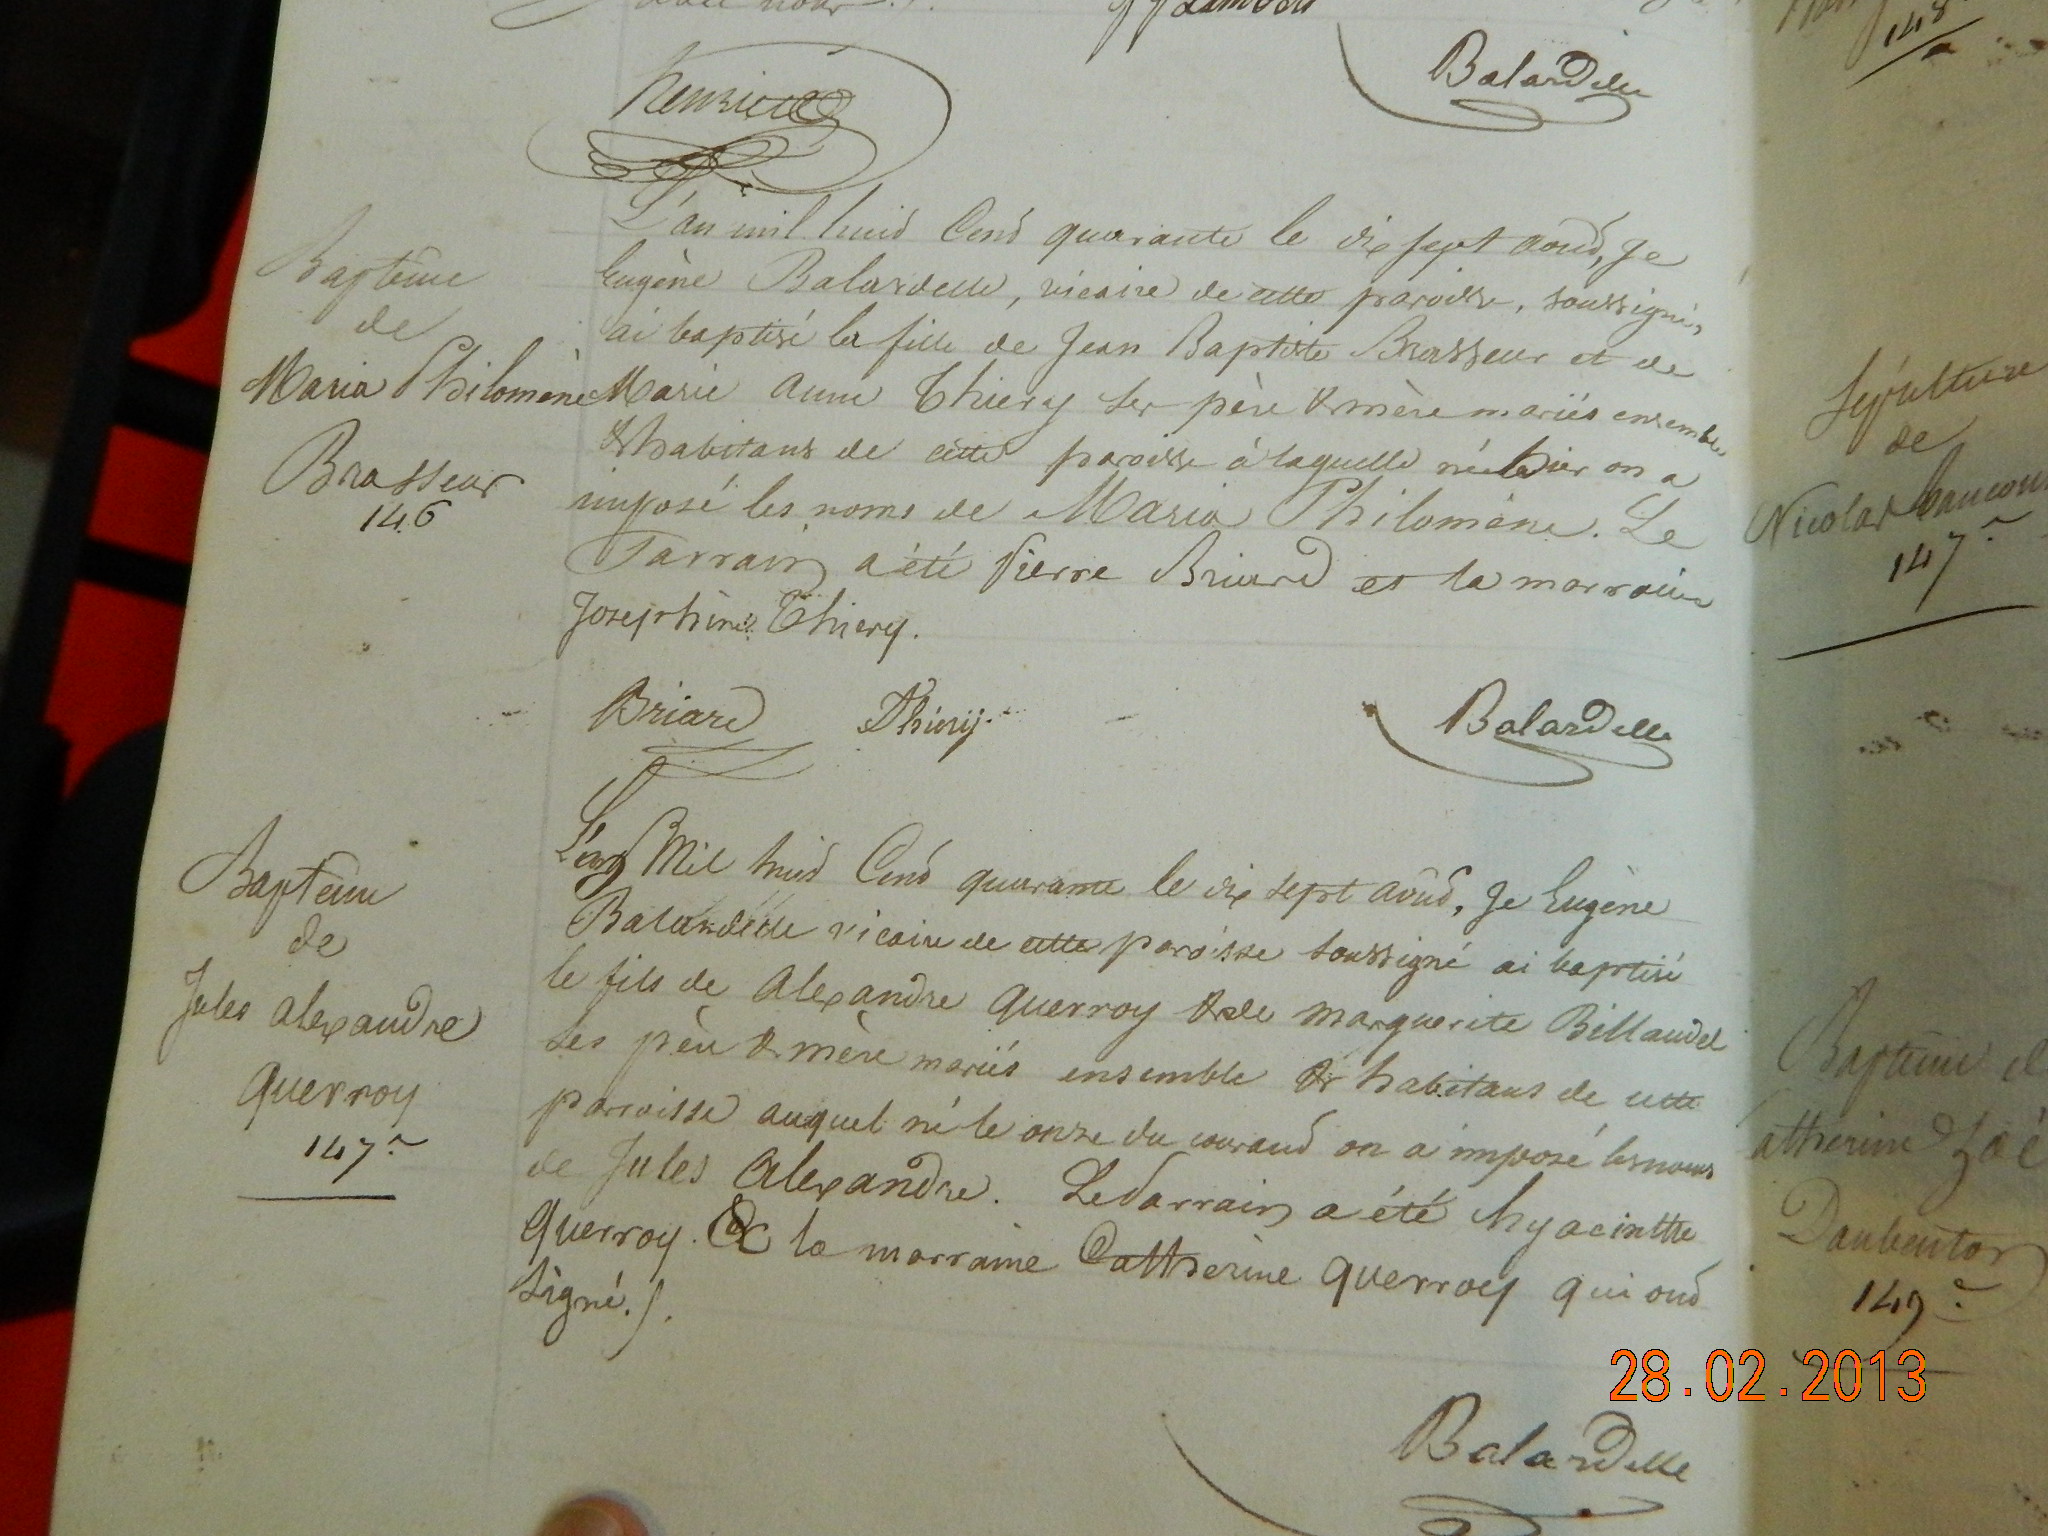 Lambert
Balardelle
L'an mil huid Cend quarante le dix sept aoûd, Je
Eugène Balardelle, vicaire de cette paroisse, soussigné,
ai baptisé la fille de Jean Baptiste Brasseur et de
Marie anne Thiery ses père & mère mariés ensemble
& habitans de cette paroisse à laquelle née hier on a
imposé les noms de Maria Philomène. Le
Parrain a été Pierre Briard et la marraine
Josephine Thiery.
Baptême
de
Maria Philomène
Brasseur
146
Briard Thiery Balardelle
L'an Mil huid Cend quarante le dix sept aoûd, Je Eugène
Balardelle vicaire de cette paroisse soussigné ai baptisé
le fils de Alexandre Querroy & de Marguerite Billaudel
ses père & mère mariés ensemble & habitans de cette
parroisse auquel né le onze du courand on a imposé les noms
de Jules Alexandre. Le Parrain a été hyacinthe
Querroy. & la marraine Catherine Querroy qui ond
signé./.
Baptême
de
Jules alexandre
Querroy
147
Balardelle
148
Sépulture
de
Nicolas
147
Baptême d
Catherine Zoé
Daubenton
149
28.02.2013